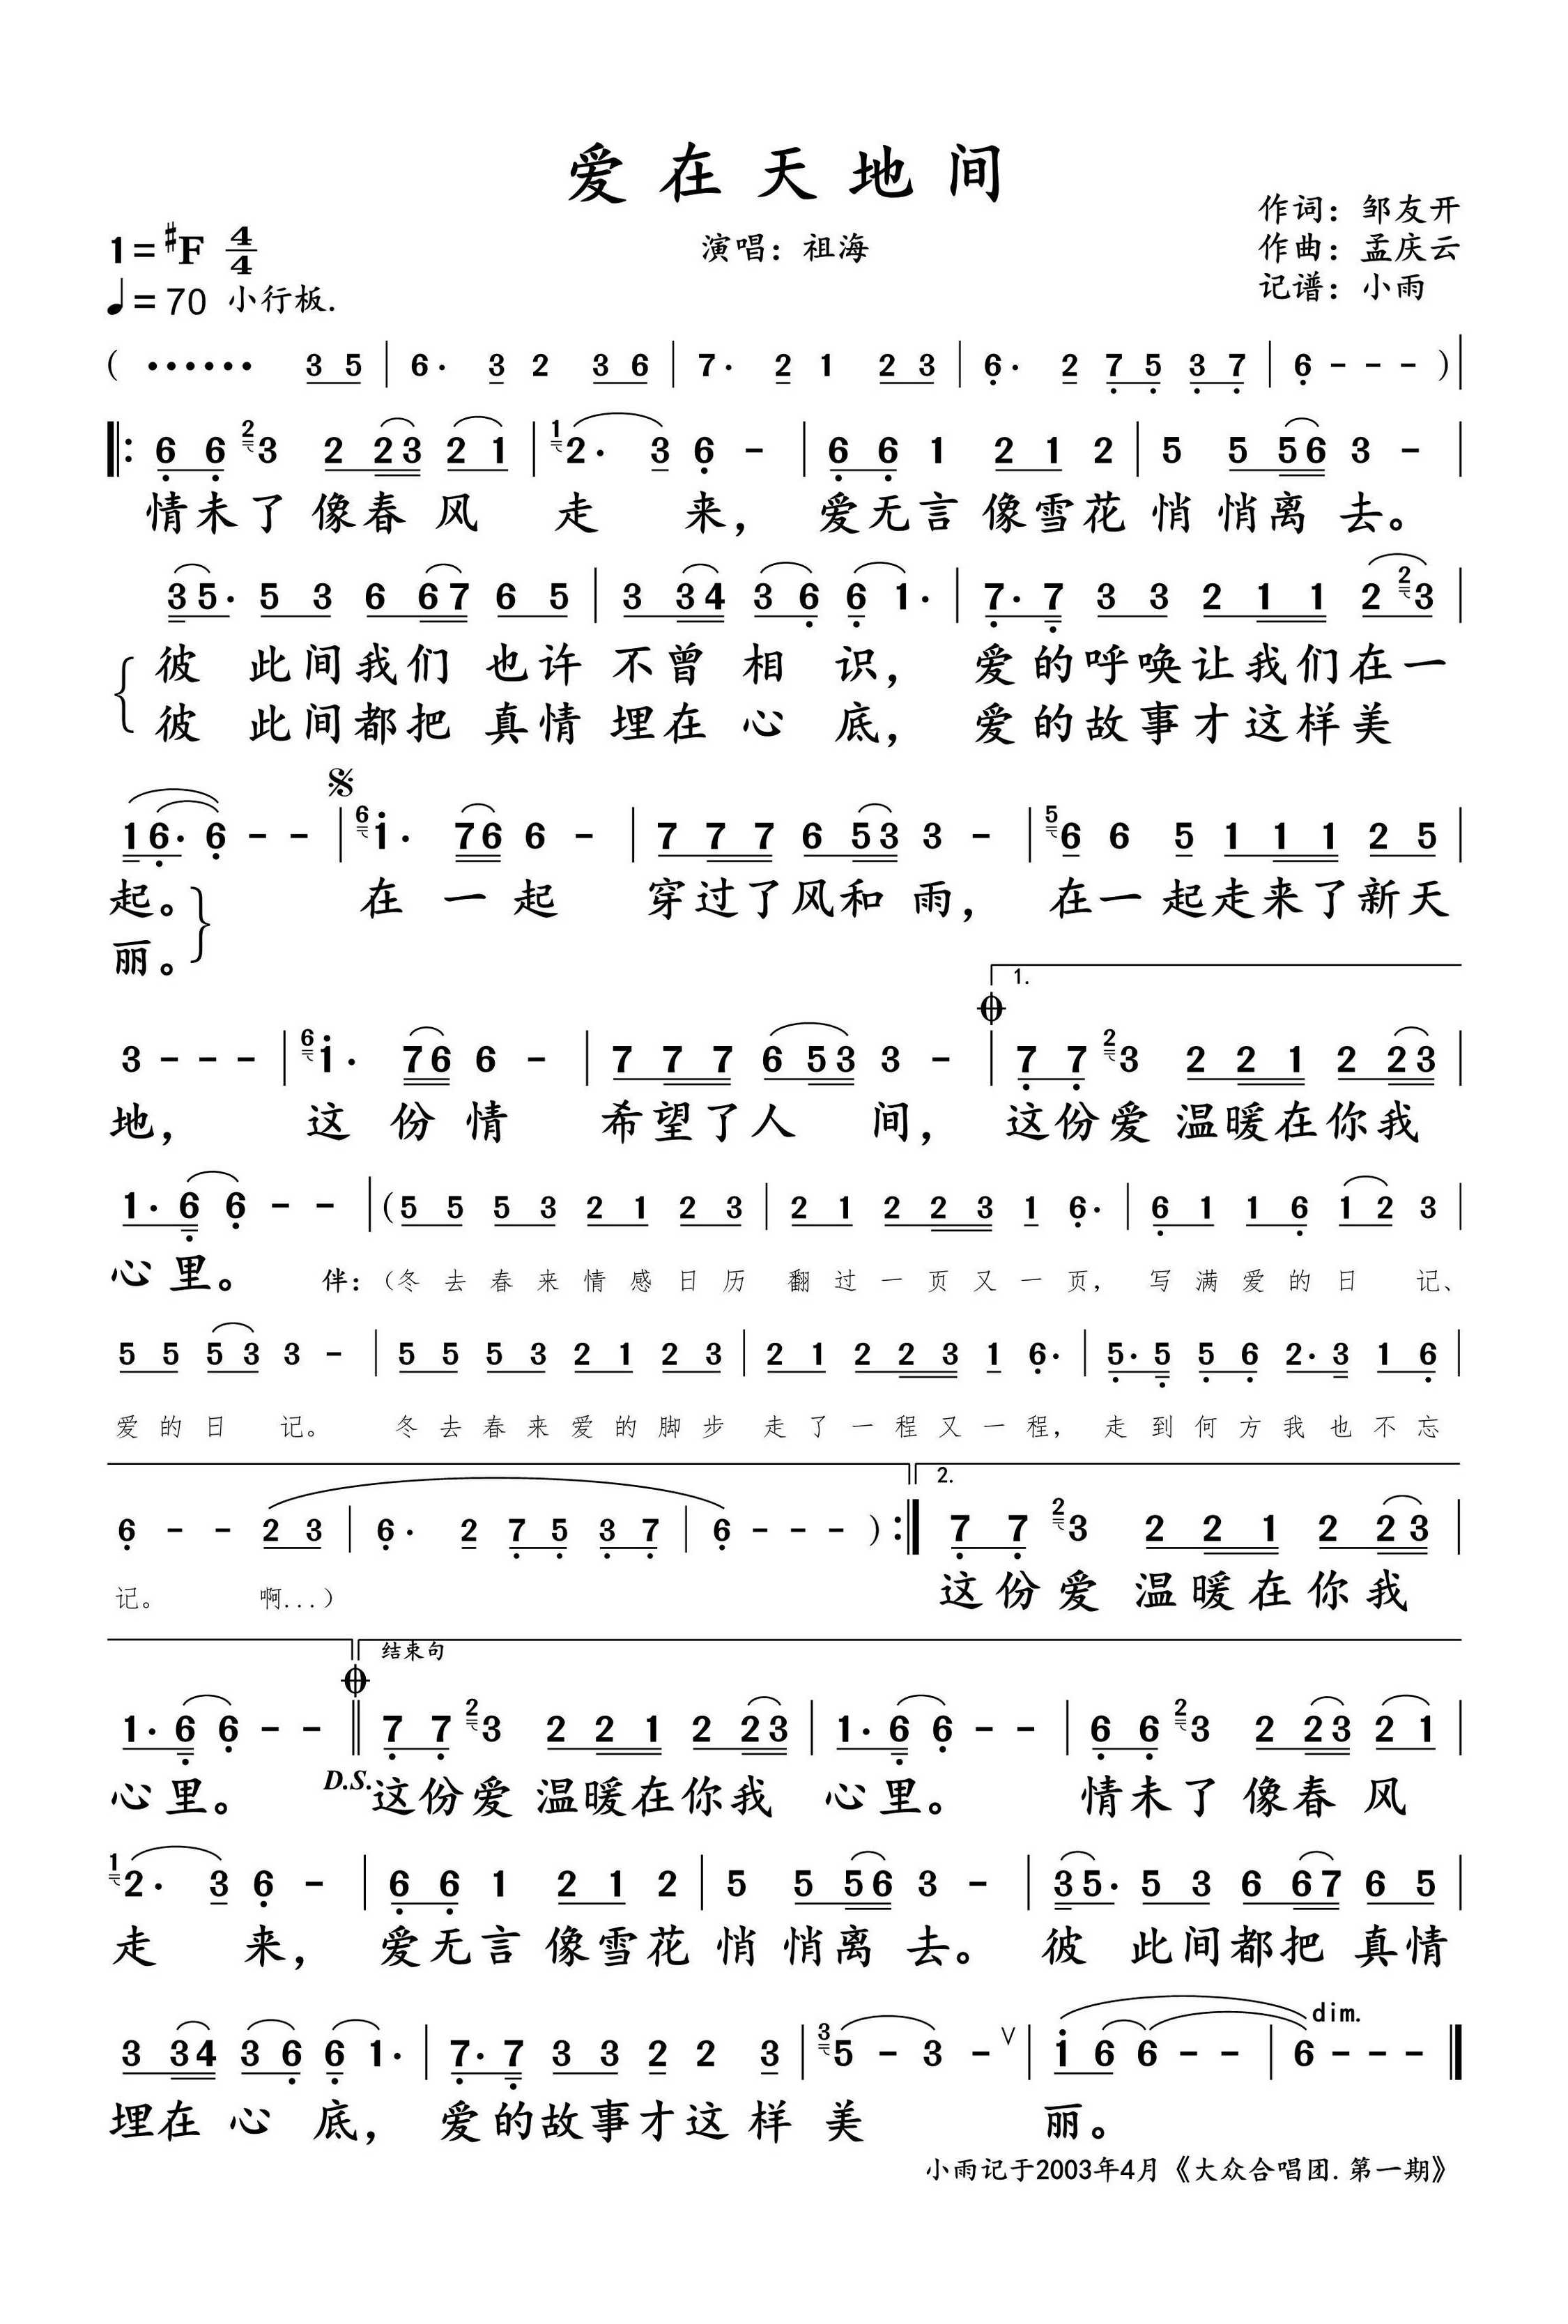 爱在天地间
作词：邹友开
1=♯F 4/4
演唱：祖海
作曲：孟庆云
♩=70 小行板.
记谱：小雨
( ······ 3 5 | 6· 3 2 3 6 | 7· 2 1 2 3 | 6· 2 7 5 3 7 | 6 - - - ) |
‖: 6 6 2 3 2 2 3 2 1 | 1 2· 3 6 - | 6 6 1 2 1 2 | 5 5 5 6 3 - |
情未了像春风 走 来， 爱无言像雪花悄悄离去。
3 5· 5 3 6 6 7 6 5 | 3 3 4 3 6 6 1· | 7· 7 3 3 2 1 1 2 2 3 |
彼 此间我们 也许 不曾 相 识， 爱的呼唤让我们在一
彼 此间都把 真情 埋在 心 底， 爱的故事才这样美
1 6· 6 - - | 6 i· 7 6 6 - | 7 7 7 6 5 3 3 - | 5 6 6 5 1 1 1 2 5 |
起。 在一起 穿过了风和雨， 在一起走来了新天
丽。
1.
3 - - - | 6 i· 7 6 6 - | 7 7 7 6 5 3 3 - | 7 7 2 3 2 2 1 2 2 3 |
地， 这份情 希望了人 间， 这份爱温暖在你我
1· 6 6 - - | ( 5 5 5 3 2 1 2 3 | 2 1 2 2 3 1 6· | 6 1 1 6 1 2 3 |
心里。 伴：（冬去春来情感日历 翻过一页又一页， 写满爱的日 记、
5 5 5 3 3 - | 5 5 5 3 2 1 2 3 | 2 1 2 2 3 1 6· | 5· 5 5 6 2· 3 1 6 |
爱的日 记。 冬去春来爱的脚步 走了一程又一程， 走到何方我也不忘
2.
6 - - 2 3 | 6· 2 7 5 3 7 | 6 - - - ) :‖ 7 7 2 3 2 2 1 2 2 3 |
记。 啊...） 这份爱温暖在你我
结束句
1· 6 6 - - ‖ 7 7 2 3 2 2 1 2 2 3 | 1· 6 6 - - | 6 6 2 3 2 2 3 2 1 |
心里。 D.S. 这份爱温暖在你我 心里。 情未了像春风
1 2· 3 6 - | 6 6 1 2 1 2 | 5 5 5 6 3 - | 3 5· 5 3 6 6 7 6 5 |
走 来， 爱无言像雪花悄悄离去。 彼 此间都把真情
dim.
3 3 4 3 6 6 1· | 7· 7 3 3 2 2 3 | 3 5 - 3 - ∨ | i 6 6 - - | 6 - - - ‖
埋在 心 底， 爱的故事才这样 美 丽。
小雨记于2003年4月《大众合唱团.第一期》